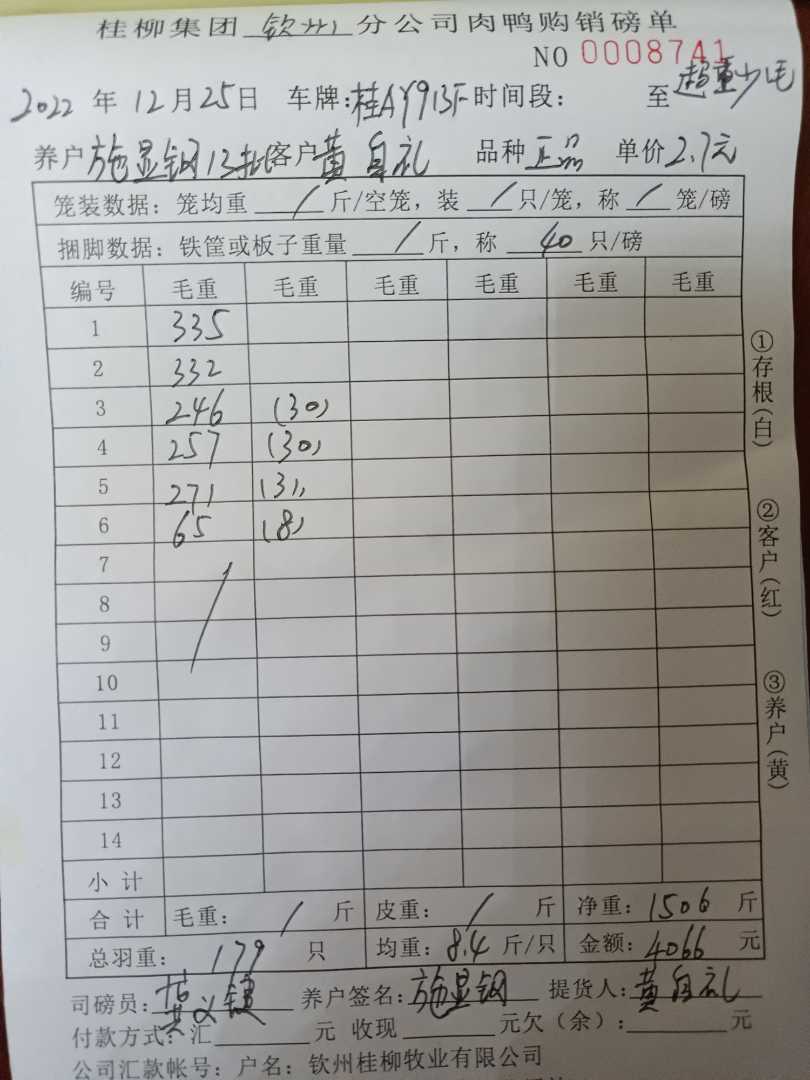 桂柳集团 钦州 分公司肉鸭购销磅单
NO 0008741
2022 年 12月25日 车牌:桂AY913F时间段: 至 超重少毛
养户 施显钢13批客户 黄自礼 品种 正品 单价2.7元
笼装数据: 笼均重 / 斤/空笼, 装 / 只/笼, 称 / 笼/磅
捆脚数据: 铁筐或板子重量 / 斤, 称 40 只/磅
编号 毛重 毛重 毛重 毛重 毛重 毛重
1 335
2 332
3 246 (30)
4 257 (30)
5 271 (31)
6 65 (8)
7
8
9
10
11
12
13
14
小 计
合 计 毛重: / 斤 皮重: / 斤 净重: 1506 斤
总羽重: 179 只 均重: 8.4 斤/只 金额: 4066 元
司磅员: 养户签名: 施显钢 提货人: 黄自礼
付款方式: 汇 元 收现 元欠(余): 元
公司汇款帐号: 户名: 钦州桂柳牧业有限公司
①存根(白)
②客户(红)
③养户(黄)